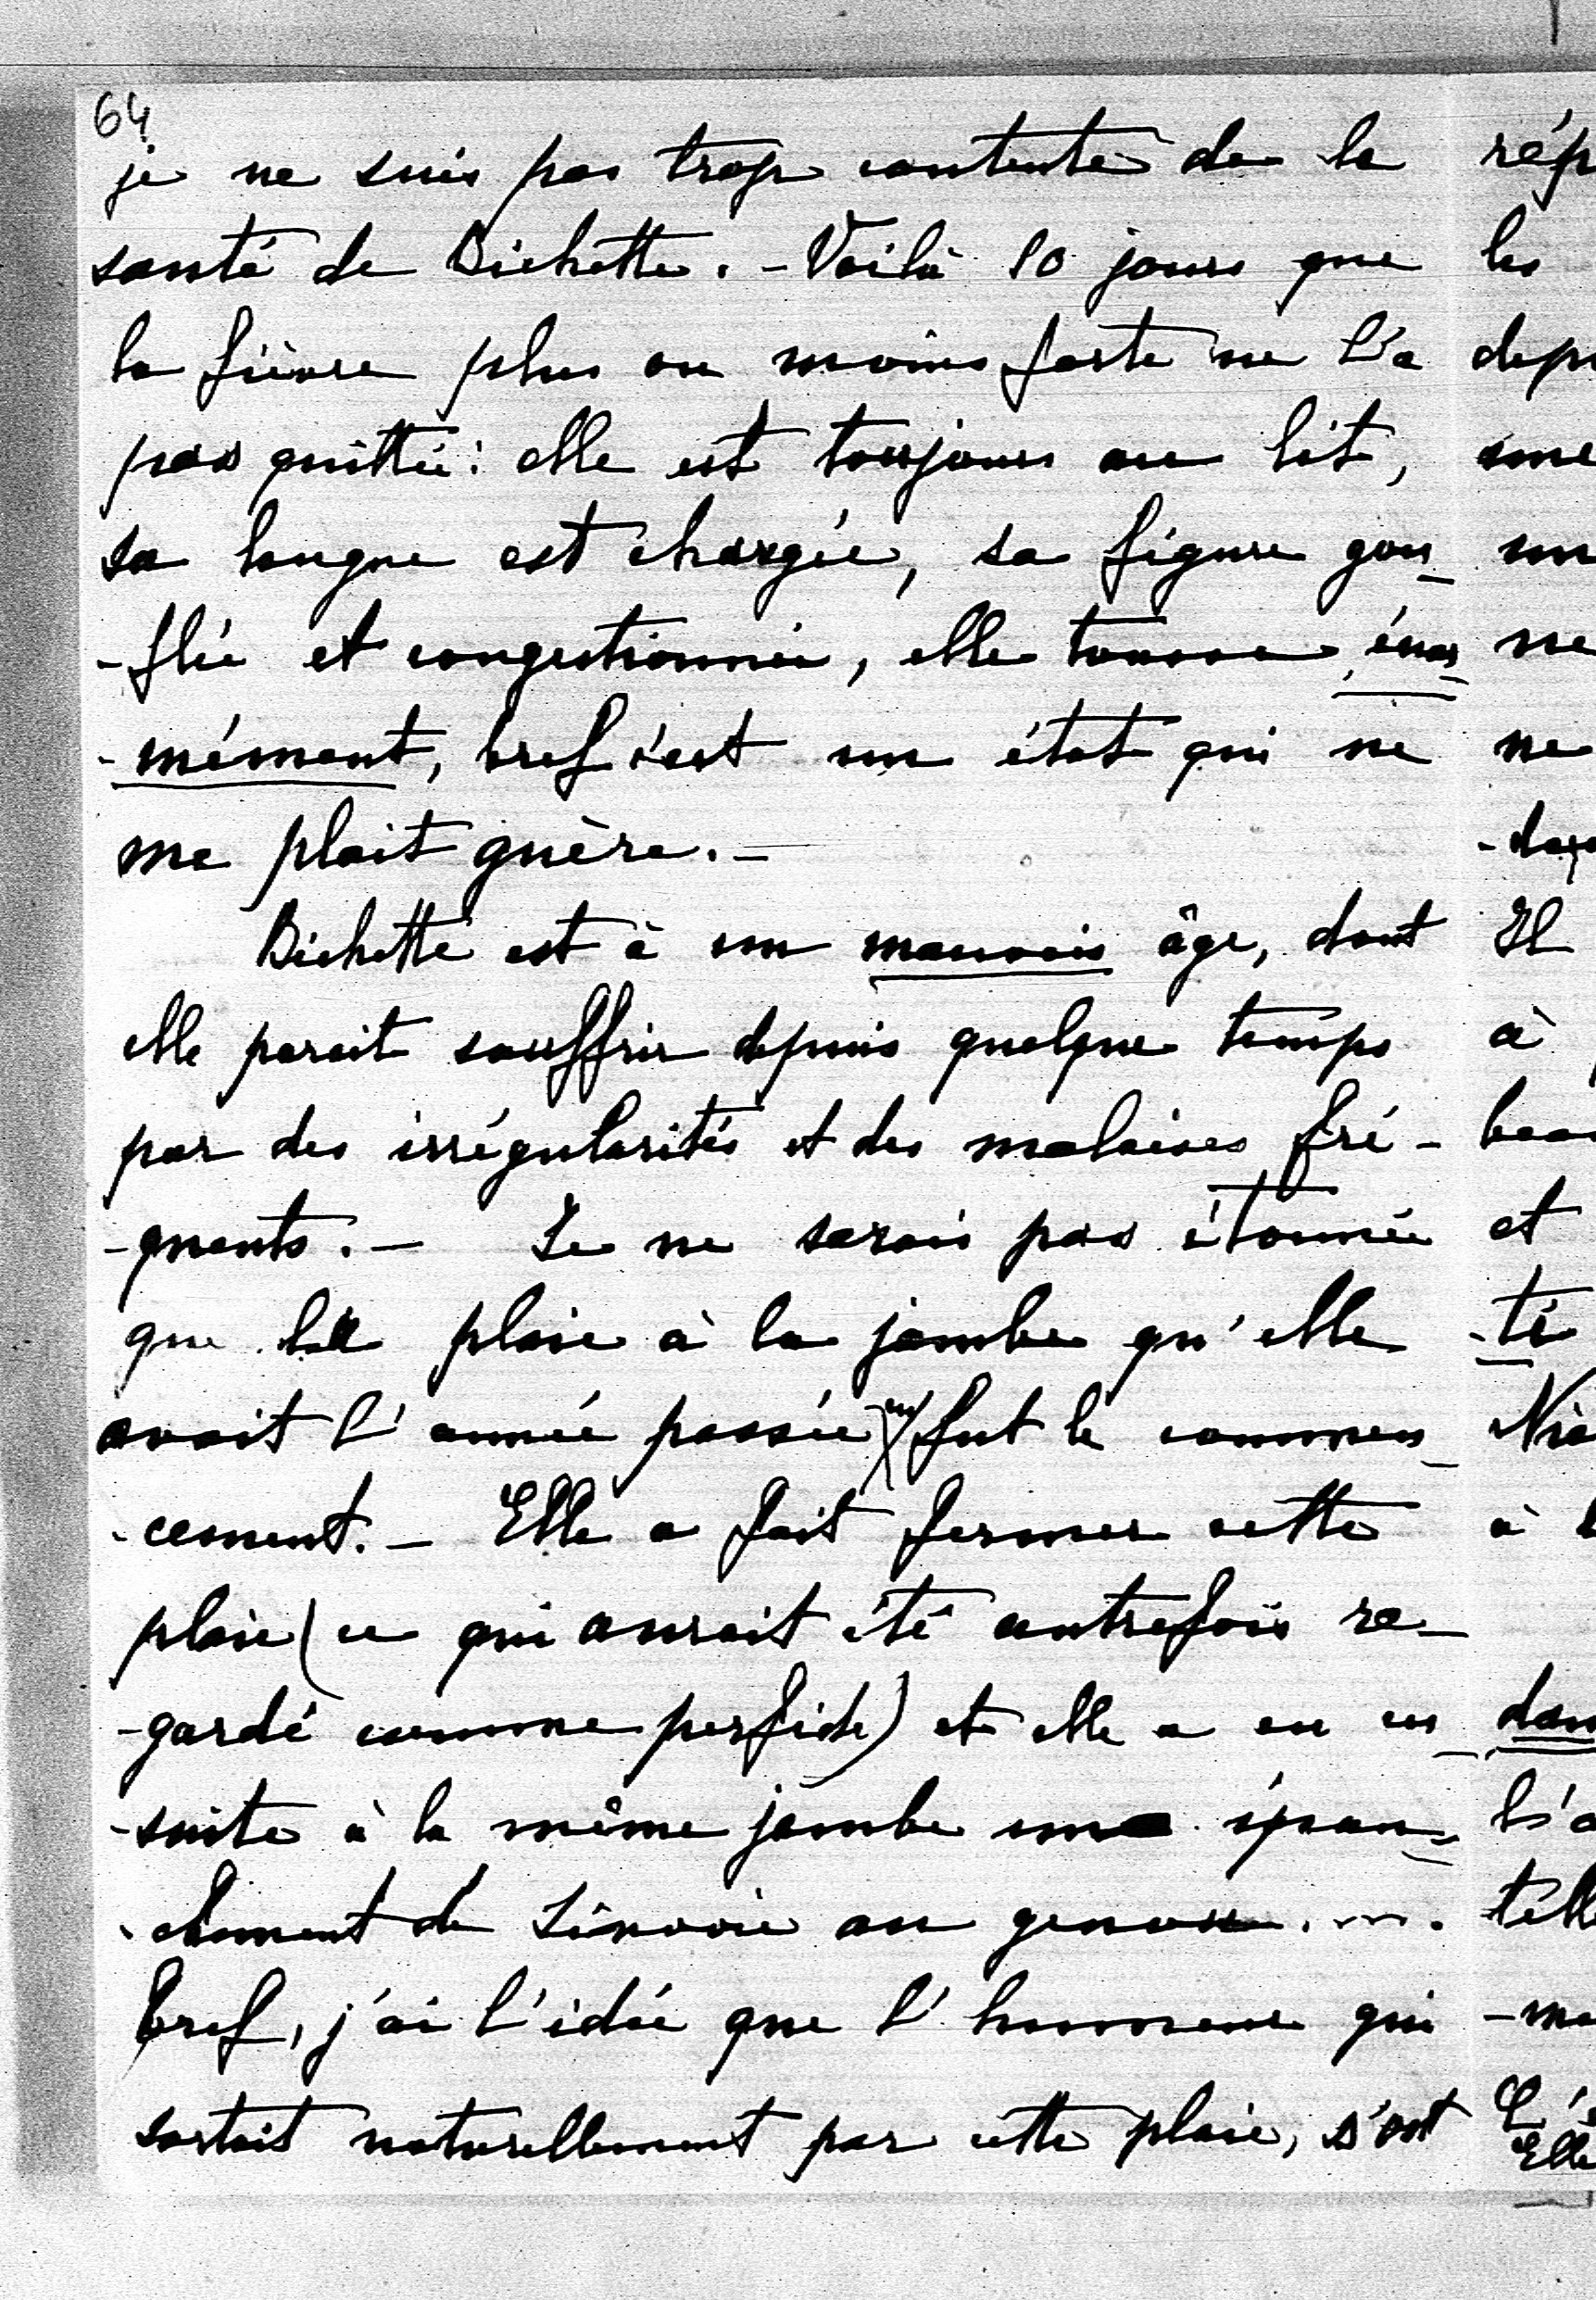 64
je ne suis pas trop contente de la
santé de Bichette. - Voilà 10 jours que
la fièvre plus ou moins forte ne l'a
pas quittée : elle est toujours au lit,
sa langue est chargée, sa figure gon-
-flée et congestionnée, elle tousse énor-
-mément, bref c'est un état qui ne
me plait guère. -
Bichette est à un mauvais âge, dont
elle parait souffrir depuis quelque temps
par des irrégularités et des malaises fré-
-quents. - Je ne serais pas étonnée
que la plaie à la jambe qu'elle
avait l'année passée en fut le commen-
-cement. - Elle a fait fermer cette
plaie (ce qui aurait été autrefois re-
-gardé comme perfide) et elle a eu en-
-suite à la même jambe un épan-
-chement de sinovie au genou. ....
bref, j'ai l'idée que l'humeur qui
sortait naturellement par cette plaie, s'est
rép
les
dep
une
un
ne
ne
Il
à
beau
et
-té
à
dan
l'a
tell
-me
Elle